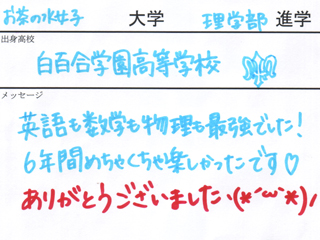 お茶の水女子 大学 理学部 進学
出身高校
白百合学園高等学校
メッセージ
英語も数学も物理も最強でした!
6年間めちゃくちゃ楽しかったです♡
ありがとうございました、(*´ω`*)ﾉ